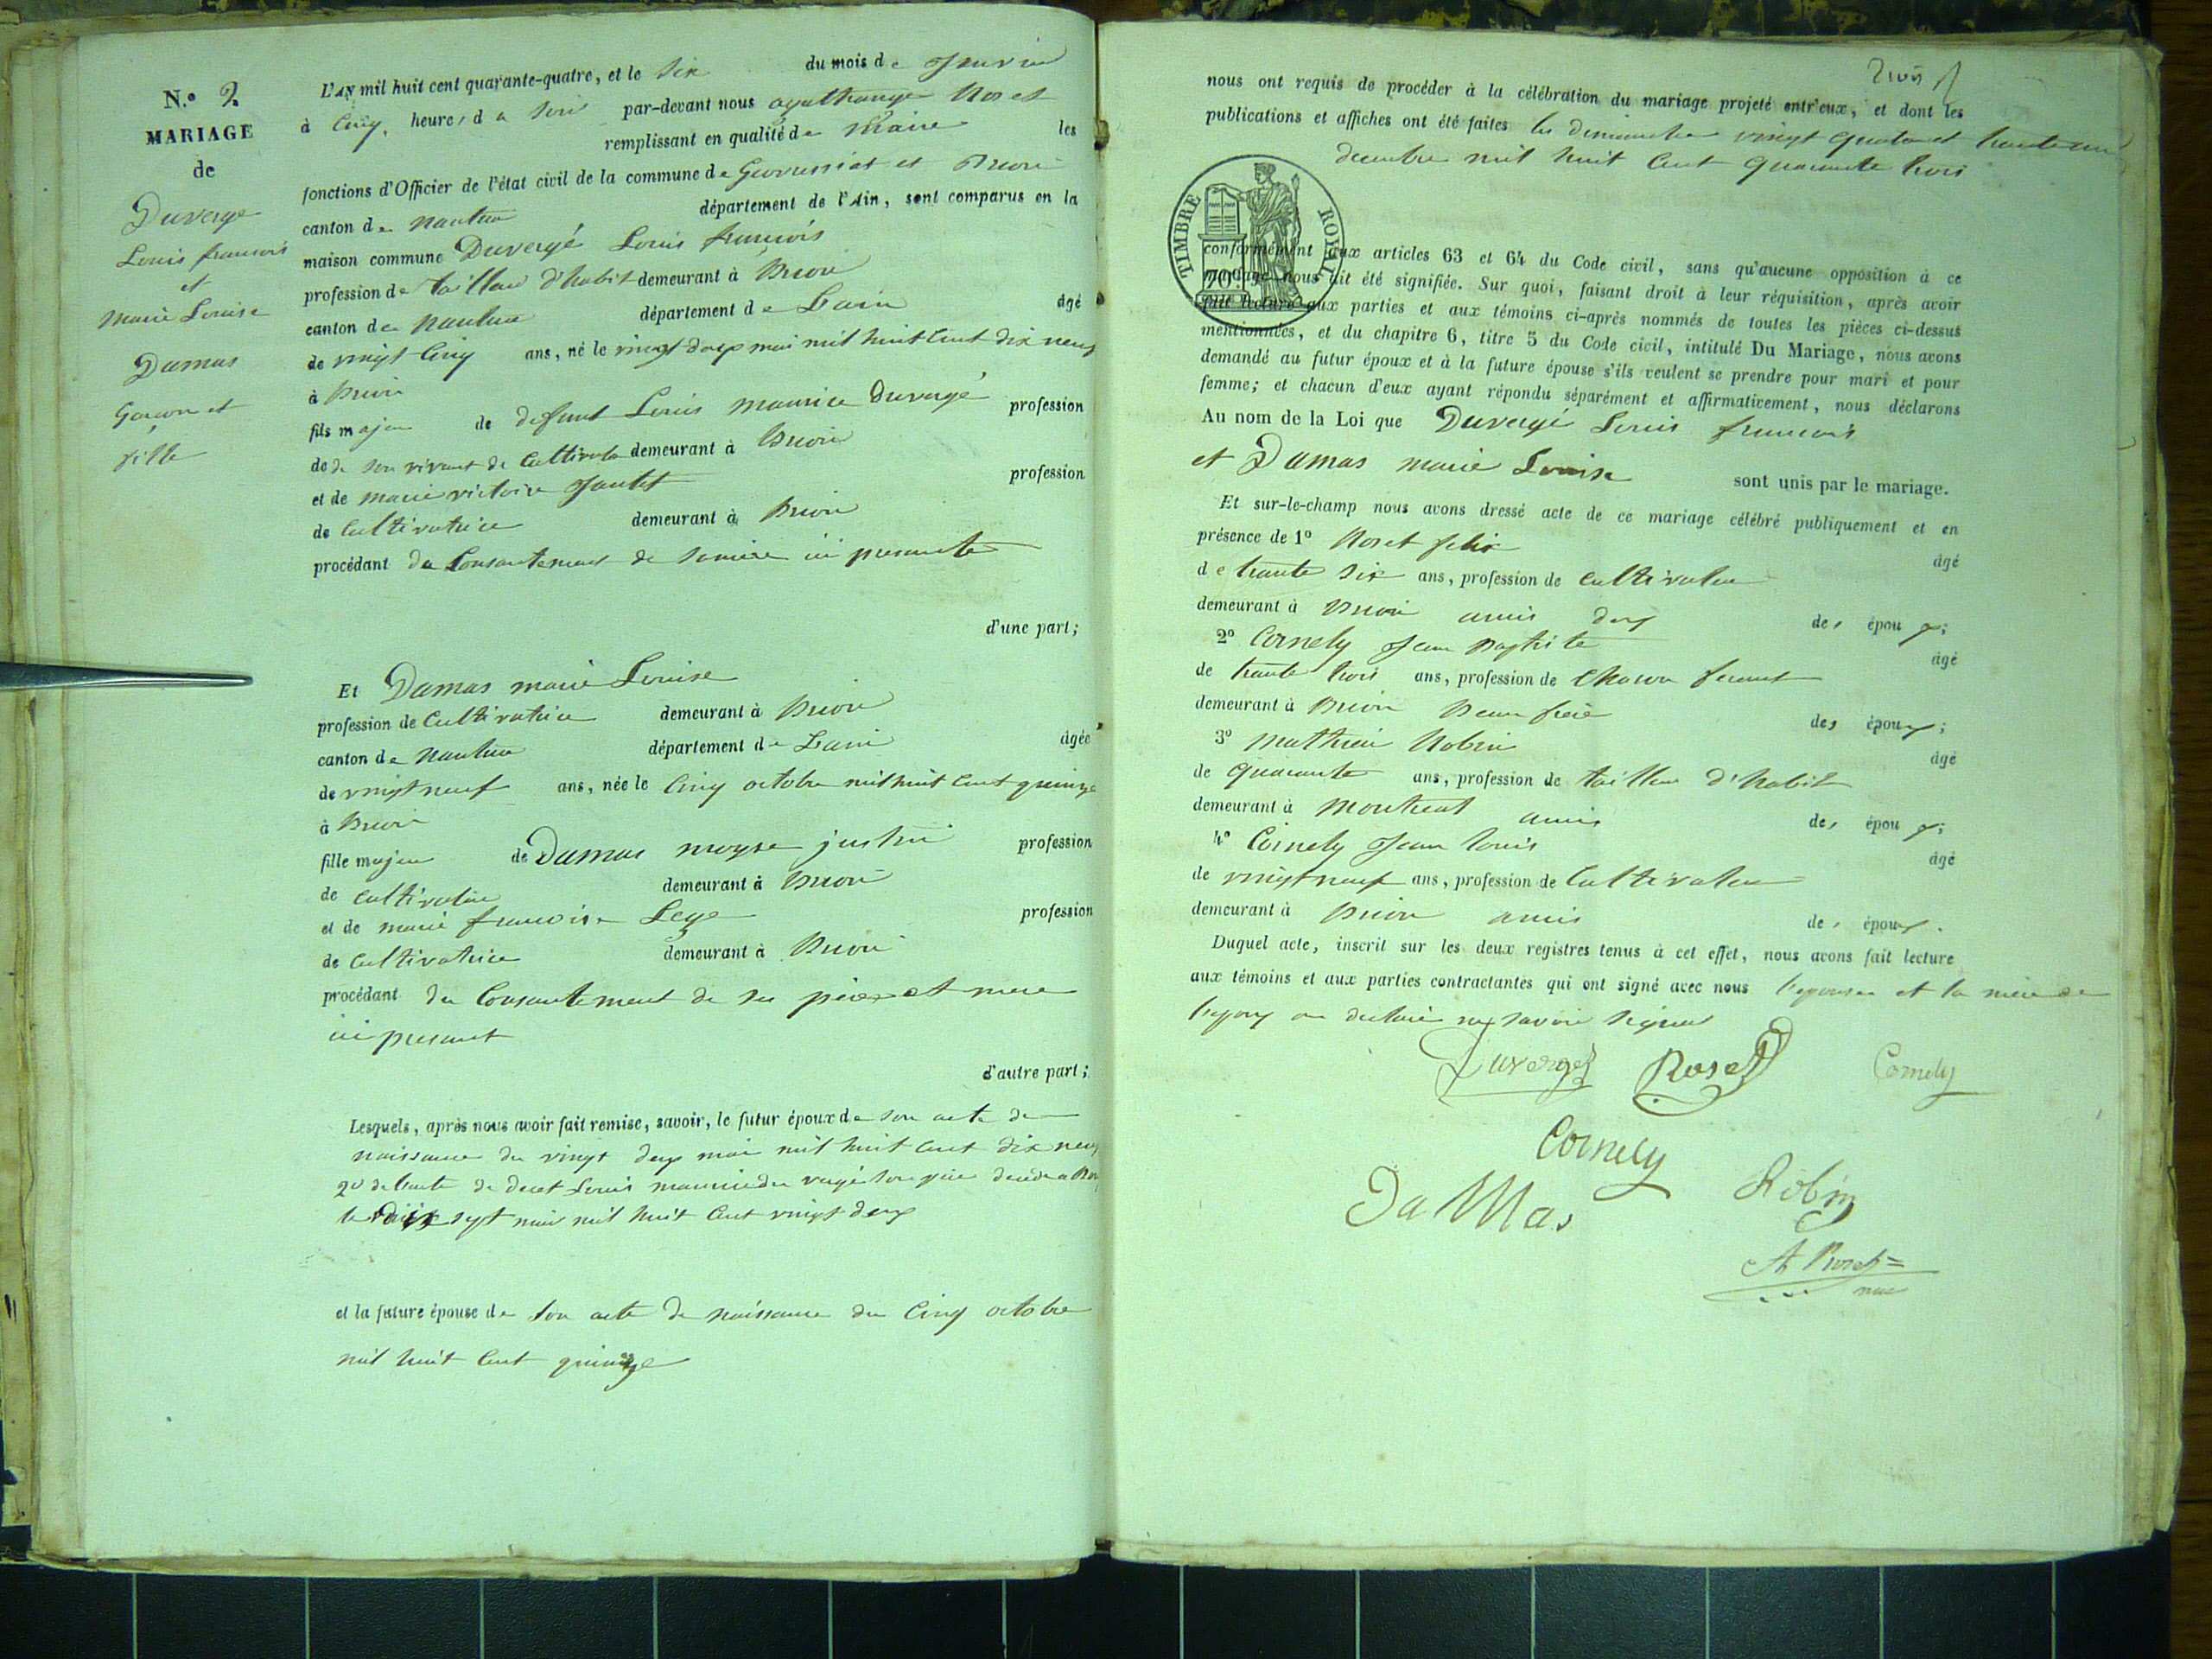 N.º 2.
MARIAGE
de
Duverge
Louis francois
et
marie Louise
Damas
Garcon et
fille
L'AN mil huit cent quarante-quatre, et le six du mois de Janvier
à Cinq heures du soir par-devant nous agathange Roset
remplissant en qualité de Maire les
fonctions d'Officier de l'état civil de la commune de Geovressiat et Brion
canton de nantua département de l'Ain, sont comparus en la
maison commune Duvergé Louis francois
profession de tailleur d'habit demeurant à Brion
canton de nantua département de Lain âgé
de vingt Cinq ans, né le vingt deux mai mil huit Cent dix neuf
à Brion
fils majeur de defunt Louis maurice Duvergé profession
de de son vivant de Cultivateur demeurant à Brion
et de marie victoire profession
de Cultivatrice demeurant à Brion
procédant du Consantement de sa mere ici presante
d'une part;
Et Damas marie Louise
profession de Cultivatrice demeurant à Brion
canton de Nantua département de Lain âgée
de vingt neuf ans, née le Cinq octobre mil huit Cent quinze
à Brion
fille majeur de Damas moyse justin profession
de cultivateur demeurant à Brion
et de marie francoise profession
de Cultivatrice demeurant à Brion
procédant du Consantement de ses pere et mere
ici presant
d'autre part;
Lesquels, après nous avoir fait remise, savoir, le futur époux de son acte de
naissance du vingt deux mai mil huit Cent dix neuf
2º de Lacte de decet Louis maurice du vergé son pere decede a
le dix sept mai mil huit Cent vingt deux
et la future épouse de son acte de naissance du Cinq octobre
mil huit Cent quinze
nous ont requis de procéder à la célébration du mariage projeté entr'eux, et dont les
publications et affiches ont été faites les dimanche vingt quatre et trante un
decembre mil huit Cent quarante trois
TIMBRE ROYAL
conformément aux articles 63 et 64 du Code civil, sans qu'aucune opposition à ce
mariage nous ait été signifiée. Sur quoi, faisant droit à leur réquisition, après avoir
fait lecture aux parties et aux témoins ci-après nommés de toutes les pièces ci-dessus
mentionnées, et du chapitre 6, titre 5 du Code civil, intitulé Du Mariage, nous avons
demandé au futur époux et à la future épouse s'ils veulent se prendre pour mari et pour
femme; et chacun d'eux ayant répondu séparément et affirmativement, nous déclarons
Au nom de la Loi que Duvergé Louis francois
et Damas marie Louise sont unis par le mariage.
Et sur-le-champ nous avons dressé acte de ce mariage célébré publiquement et en
présence de 1º Roset felix âgé
de trante six ans, profession de cultivateur
demeurant à Brion amis des époux;
2º Cornely Jean Baptiste âgé
de trante trois ans, profession de Charon
demeurant à Brion Beau frere des époux;
3º Mathieu Robin âgé
de quarante ans, profession de tailleur d'habit
demeurant à Montreal amis des époux;
4º Cornely Jean Louis âgé
de vingt neuf ans, profession de Cultivateur
demeurant à Brion amis des époux.
Duquel acte, inscrit sur les deux registres tenus à cet effet, nous avons fait lecture
aux témoins et aux parties contractantes qui ont signé avec nous Lepouse et la mere de
Lepoux on declaré ne savoir signer
Duverger Roset Cornely
Cornely
Da Mas Robin
At Roset